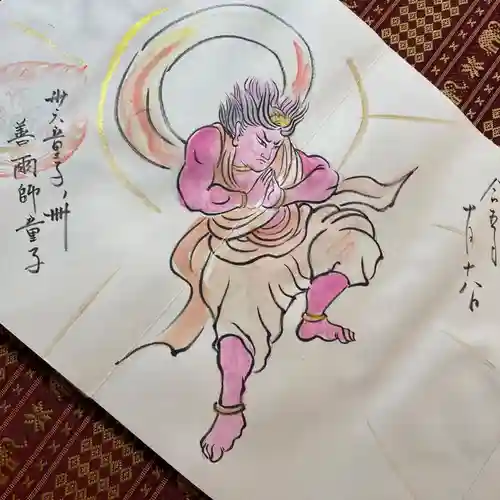 卅六童子ノ卅
善爾師童子
令和五年
十月十八日